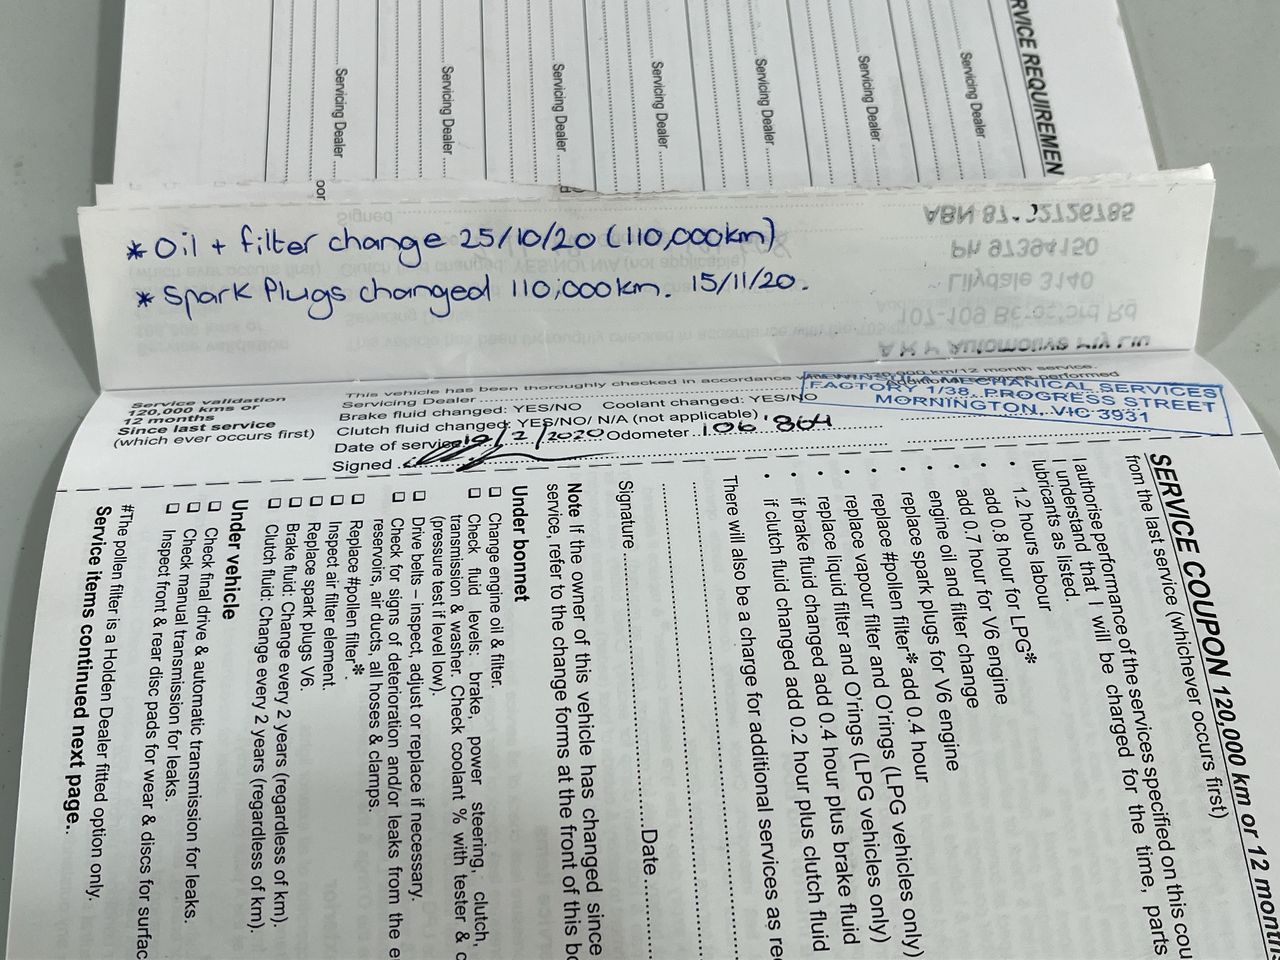 RVICE REQUIREMEN
Servicing Dealer
Servicing Dealer
Servicing Dealer
Servicing Dealer
Servicing Dealer
Servicing Dealer
Servicing Dealer
oor
* Oil + filter change 25/10/20 (110,000km)
* Spark Plugs changed 110,000km. 15/11/20.
Service validation
120,000 kms or
12 months
Since last service
(which ever occurs first)
This vehicle has been thoroughly checked in accordance 120,000 km/12 month service.
Servicing Dealer
Brake fluid changed: YES/NO Coolant changed: YES/NO
Clutch fluid changed: YES/NO/ N/A (not applicable)
Date of service 19/2/2020 Odometer 106'864
Signed
MECHANICAL SERVICES
FACTORY 1/38, PROGRESS STREET
MORNINGTON, VIC 3931
SERVICE COUPON 120,000 km or 12 month
from the last service (whichever occurs first)
I authorise performance of the services specified on this cou
I understand that I will be charged for the time, parts
lubricants as listed.
• 1.2 hours labour
• add 0.8 hour for LPG*
• add 0.7 hour for V6 engine
• engine oil and filter change
• replace spark plugs for V6 engine
• replace #pollen filter* add 0.4 hour
• replace vapour filter and O'rings (LPG vehicles only)
• replace liquid filter and O'rings (LPG vehicles only)
• if brake fluid changed add 0.4 hour plus brake fluid
• if clutch fluid changed add 0.2 hour plus clutch fluid
There will also be a charge for additional services as re
Signature Date
Note If the owner of this vehicle has changed since
service, refer to the change forms at the front of this bo
Under bonnet
☐ Change engine oil & filter.
☐ Check fluid levels: brake, power steering, clutch,
transmission & washer. Check coolant % with tester & c
(pressure test if level low).
☐ Drive belts – inspect, adjust or replace if necessary.
☐ Check for signs of deterioration and/or leaks from the e
reservoirs, air ducts, all hoses & clamps.
☐ Replace #pollen filter*.
☐ Inspect air filter element.
☐ Replace spark plugs V6.
☐ Brake fluid: Change every 2 years (regardless of km).
☐ Clutch fluid: Change every 2 years (regardless of km).
Under vehicle
☐ Check final drive & automatic transmission for leaks.
☐ Check manual transmission for leaks.
☐ Inspect front & rear disc pads for wear & discs for surfac
#The pollen filter is a Holden Dealer fitted option only.
Service items continued next page..